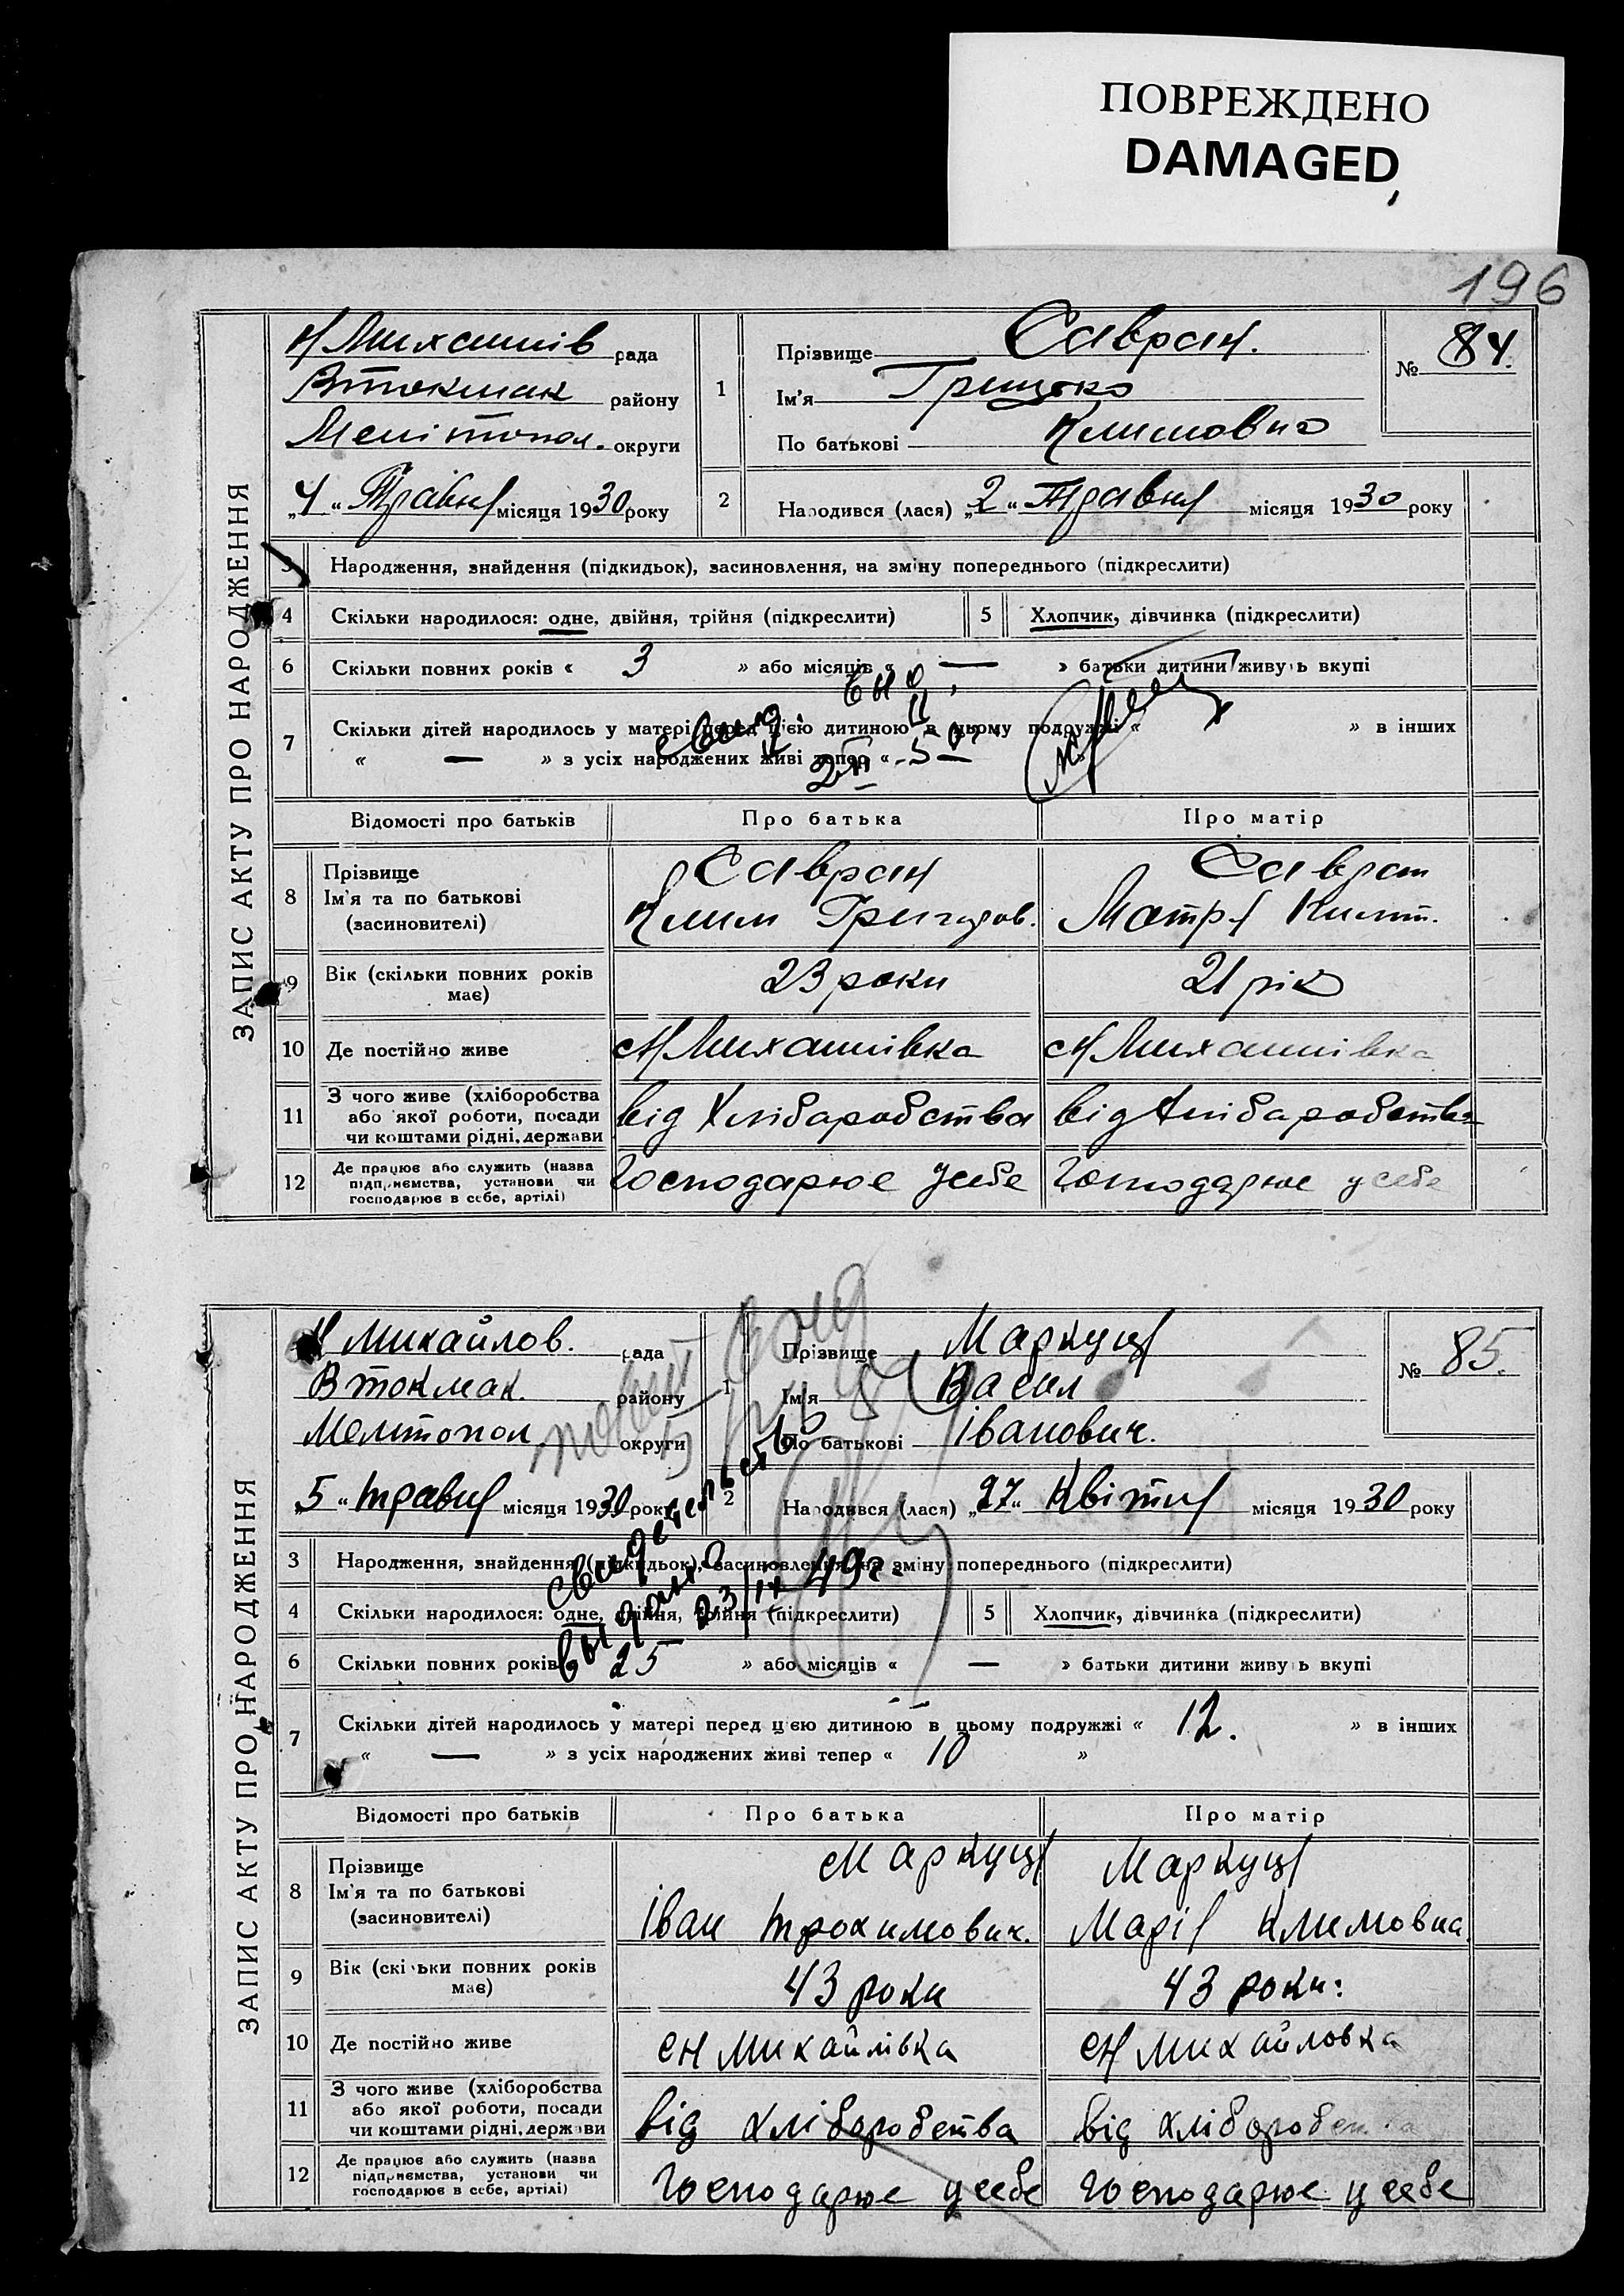 ПОВРЕЖДЕНО
DAMAGED
196
ЗАПИС АКТУ ПРО НАРОДЖЕННЯ
Н Михайлів рада
Втокмак району
Мелітопол. округи
„4“ Травня місяця 1930 року
1
Прізвище Савран.
Ім'я Грицько
По батькові Климович
№ 84.
2
Народився (лася) „2“ Травня місяця 1930 року
3
Народження, знайдення (підкидьок), засиновлення, на зміну попереднього (підкреслити)
4 Скільки народилося: одне, двійня, трійня (підкреслити)
5 Хлопчик, дівчинка (підкреслити)
6 Скільки повних років « 3 » або місяців « — » батьки дитини живуть вкупі
7 Скільки дітей народилось у матері перед цією дитиною в цьому подружжі « » в інших
« — » з усіх народжених живі тепер « —
Відомості про батьків Про батька Про матір
8 Прізвище
Ім'я та по батькові
(засиновителі)
Савран
Клим Григоров.
Савран
9 Вік (скільки повних років має)
23 роки
21 рік
10 Де постійно живе
сН Михайлівка
сН Михайлівка
11 З чого живе (хліборобства
або якої роботи, посади
чи коштами рідні, держави
від Хліборобства
від Хліборобства
12 Де працює або служить (назва
підприємства, установи чи
господарює в себе, артілі)
Господарює усебе
Господарює усебе
ЗАПИС АКТУ ПРО НАРОДЖЕННЯ
Н Михайлов. рада
Втокмак. району
Мелітопол. округи
„5“ травня місяця 1930 року
1
Прізвище Маркуця
Ім'я Васил
По батькові Іванович.
№ 85.
2
Народився (лася) „27“ Квітня місяця 1930 року
3 Народження, знайдення (підкидьок), засиновлення, на зміну попереднього (підкреслити)
4 Скільки народилося: одне, двійня, трійня (підкреслити)
5 Хлопчик, дівчинка (підкреслити)
свидетельство
выдано 23/IX 49г.
6 Скільки повних років 25 » або місяців « — » батьки дитини живуть вкупі
7 Скільки дітей народилось у матері перед цією дитиною в цьому подружжі « 12. » в інших
« — » з усіх народжених живі тепер « 10 »
Відомості про батьків Про батька Про матір
8 Прізвище
Ім'я та по батькові
(засиновителі)
Маркуця
Іван Трохимович.
Маркуця
Марія Климовна.
9 Вік (скільки повних років має)
43 роки
43 роки:
10 Де постійно живе
сН Михайлівка
сН Михайловка
11 З чого живе (хліборобства
або якої роботи, посади
чи коштами рідні, держави
від хліборобства
від хліборобства
12 Де працює або служить (назва
підприємства, установи чи
господарює в себе, артілі)
Господарює усебе
Господарює усебе